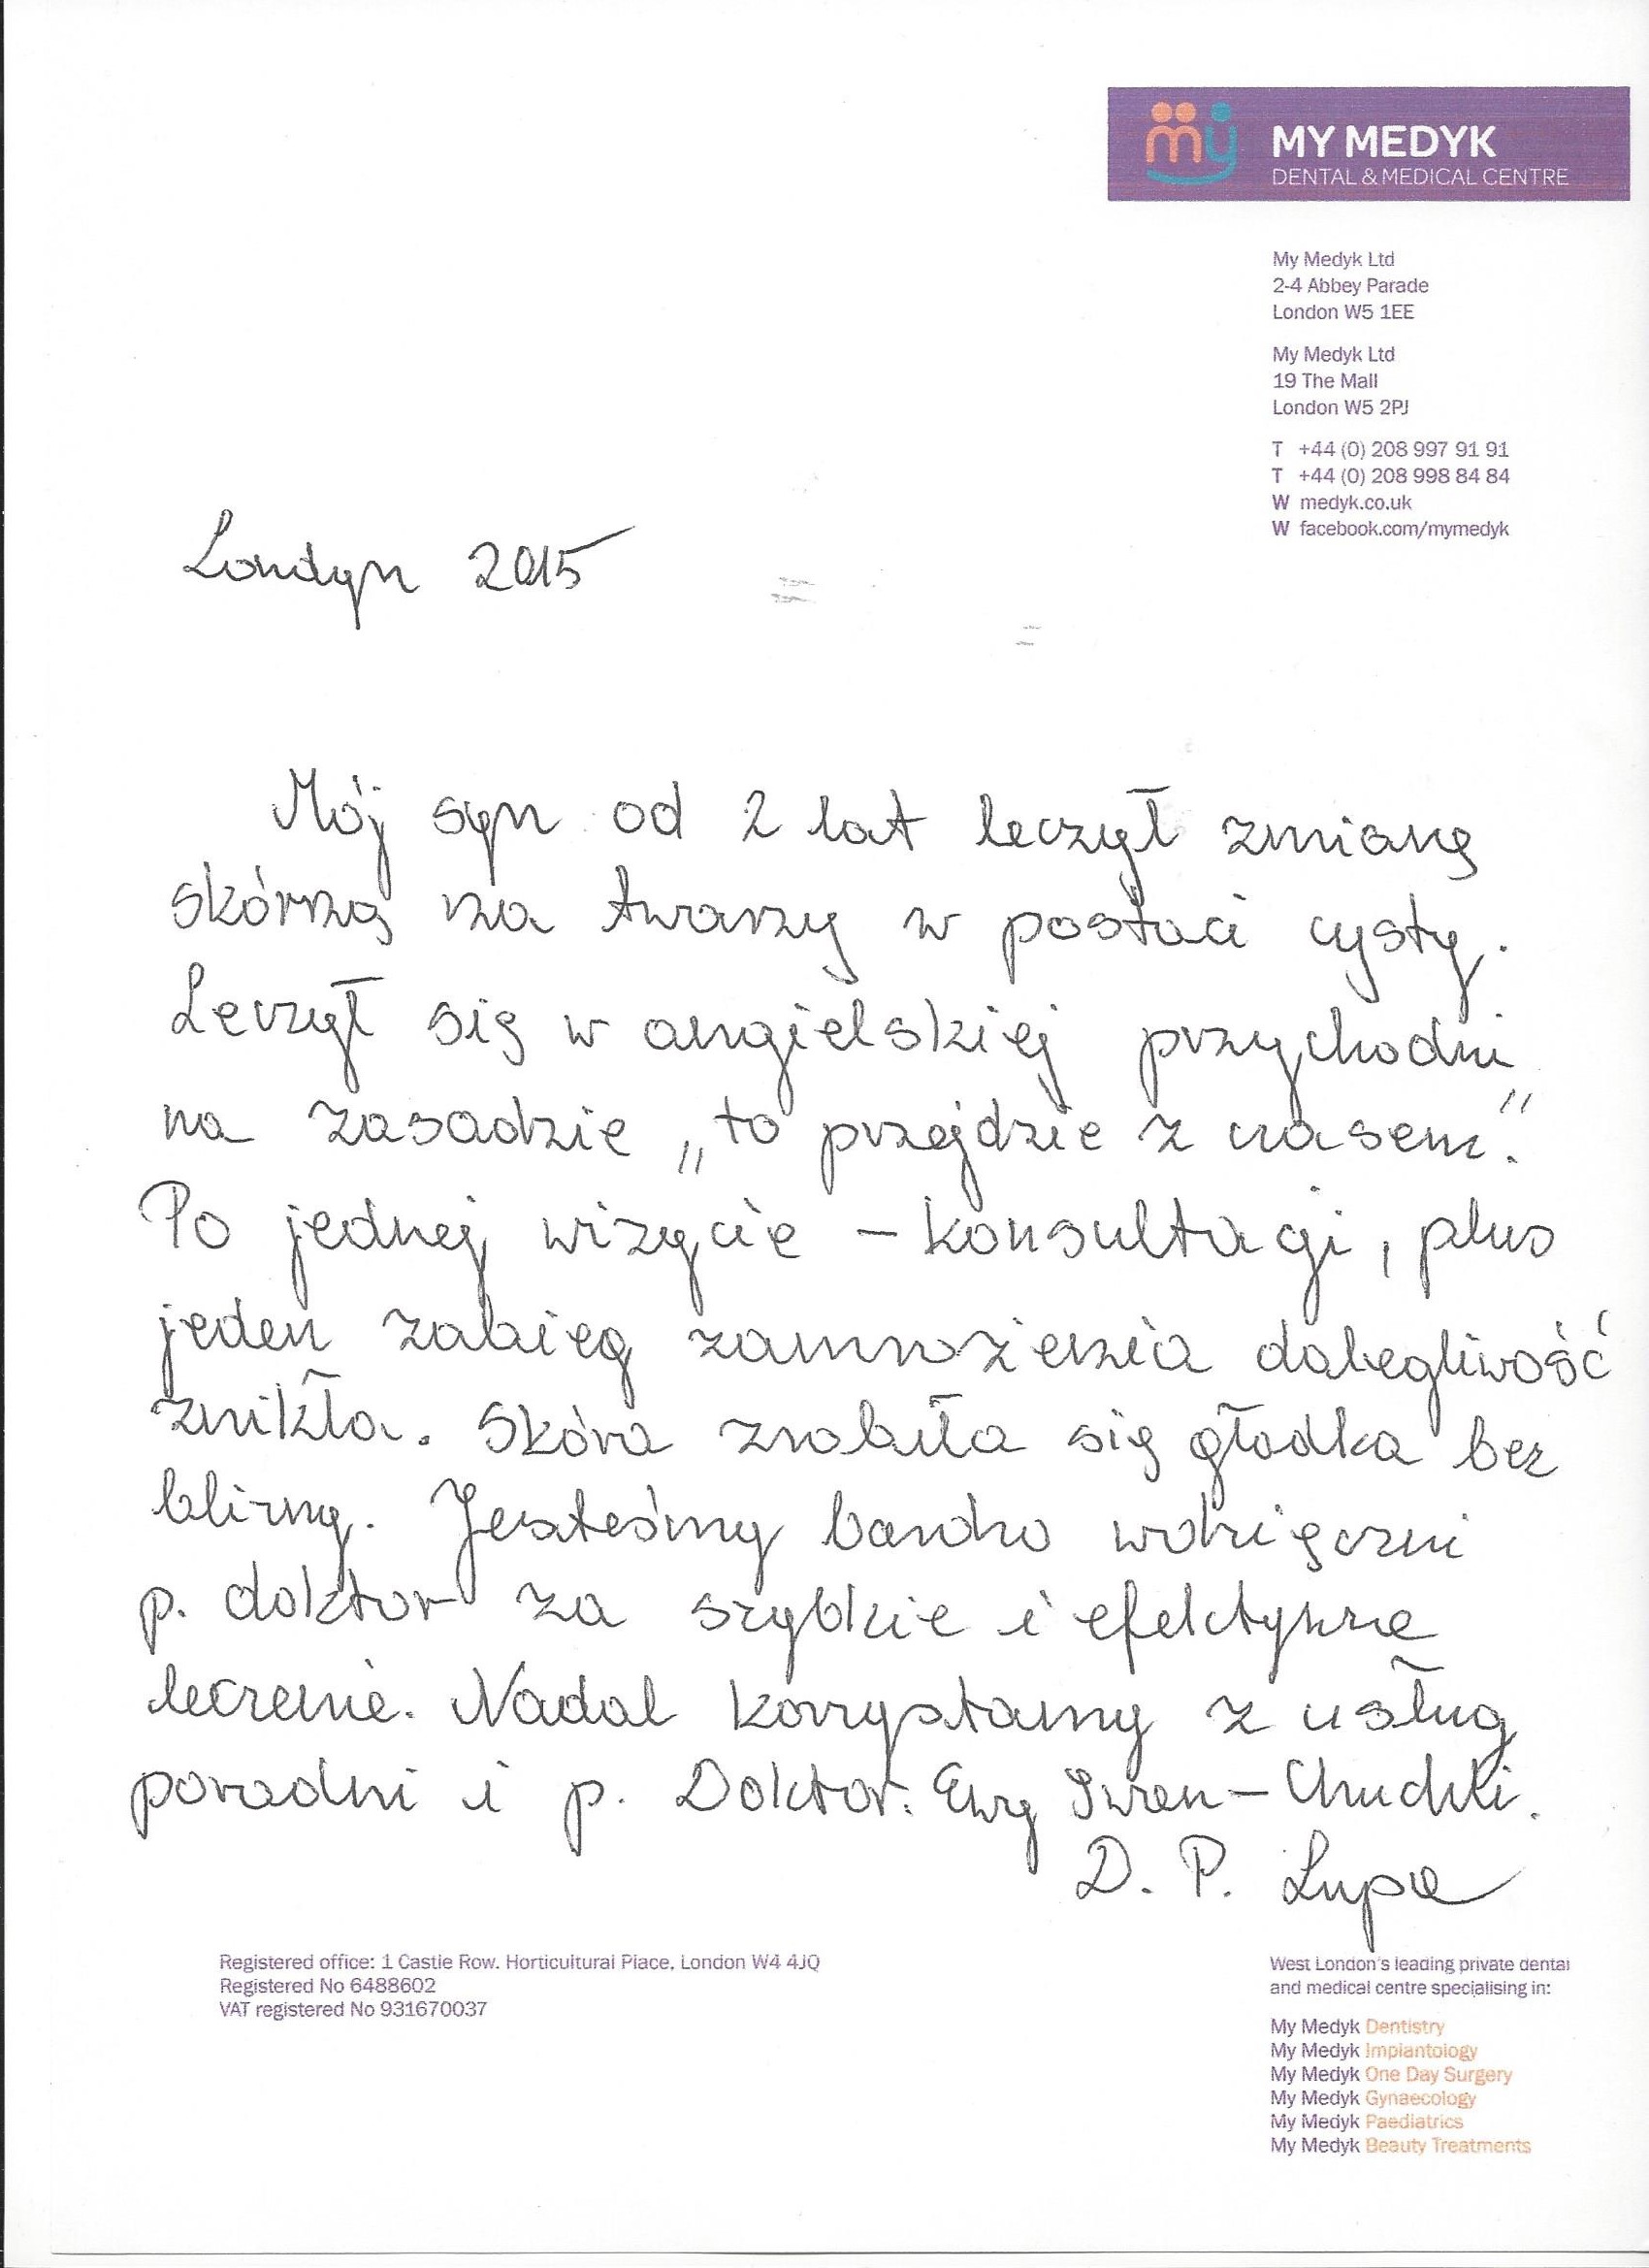 my MY MEDYK
DENTAL & MEDICAL CENTRE
My Medyk Ltd
2-4 Abbey Parade
London W5 1EE
My Medyk Ltd
19 The Mall
London W5 2PJ
T +44 (0) 208 997 91 91
T +44 (0) 208 998 84 84
W medyk.co.uk
W facebook.com/mymedyk
Londyn 2015
Mój syn od 2 lat leczył zmianę
skórną na twarzy w postaci cysty.
Leczył się w angielskiej przychodni
na zasadzie „to przejdzie z czasem”.
Po jednej wizycie – konsultacji, plus
jeden zabieg zamrożenia dolegliwość
znikła. Skóra zrobiła się gładka bez
blizny. Jesteśmy bardzo wdzięczni
p. doktor za szybkie i efektywne
leczenie. Nadal korzystamy z usług
poradni i p. Doktor. Ewy Iwan – Chuchli.
D. P. Lupa
Registered office: 1 Castle Row, Horticultural Place, London W4 4JQ
Registered No 6488602
VAT registered No 931670037
West London's leading private dental
and medical centre specialising in:
My Medyk Dentistry
My Medyk Implantology
My Medyk One Day Surgery
My Medyk Gynaecology
My Medyk Paediatrics
My Medyk Beauty Treatments